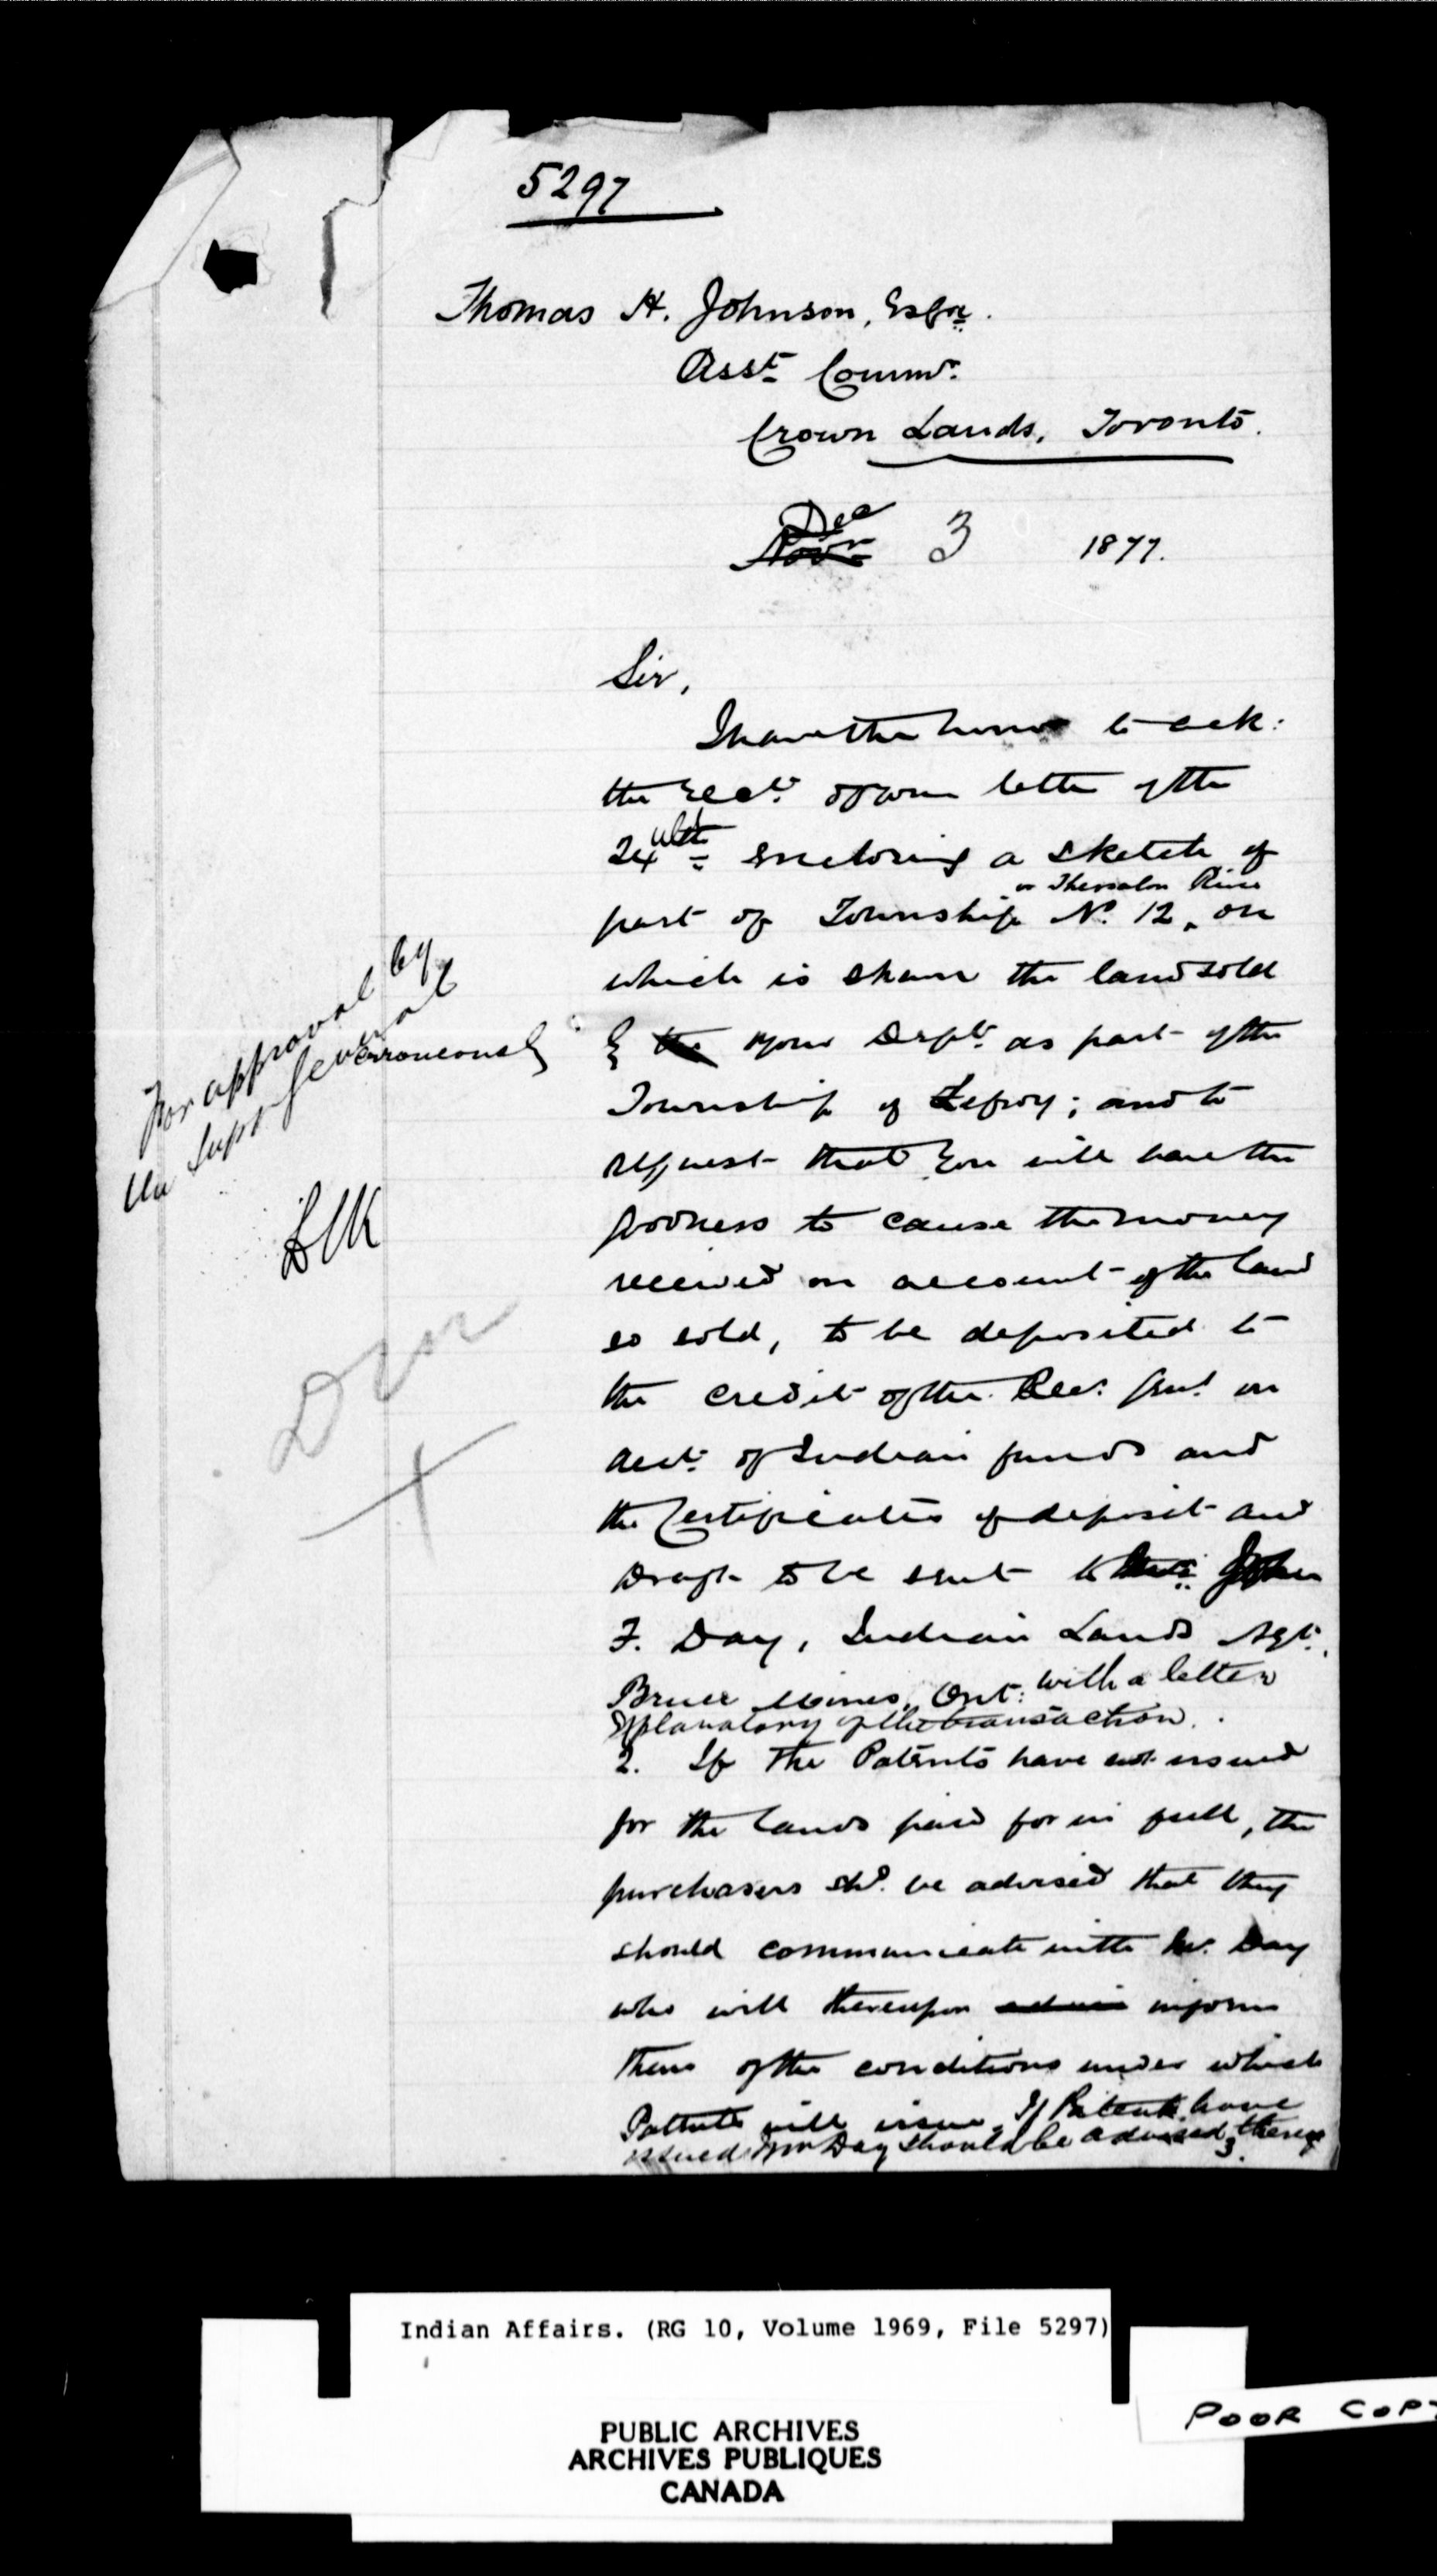 5297
Thomas H. Johnson, Esqre.
Asst. Commr.
Crown Lands, Toronto.
Dec
Novr 3 1877.
Sir,
I have the honor to ack:
the rect. of your letter of the
ult
24th enclosing a sketch of
or Thessalon River
part of Township No. 12, on
which is shown the land sold
For approval by
the Supt General
erroneously
by the your Dept. as part of the
Township of Lefroy; and to
request that you will have the
goodness to cause the money
received on account of the land
so sold, to be deposited to
the credit of the Rec. Genl. on
acct. of Indian funds and
the Certificates of deposit and
Draft to be sent to John
F. Day, Indian Lands Agt.,
Bruce Mines, Ont: with a letter
Explanatory of the transaction.
2. If the Patents have not issued
for the lands paid for in full, the
purchasers shd. be advised that they
should communicate with Mr. Day
who will thereupon advise inform
them of the conditions under which
Patents will issue. If Patents have
issued Mr Day should be advised thereof
3.
Indian Affairs. (RG 10, Volume 1969, File 5297)
PUBLIC ARCHIVES
ARCHIVES PUBLIQUES
CANADA
POOR COPY